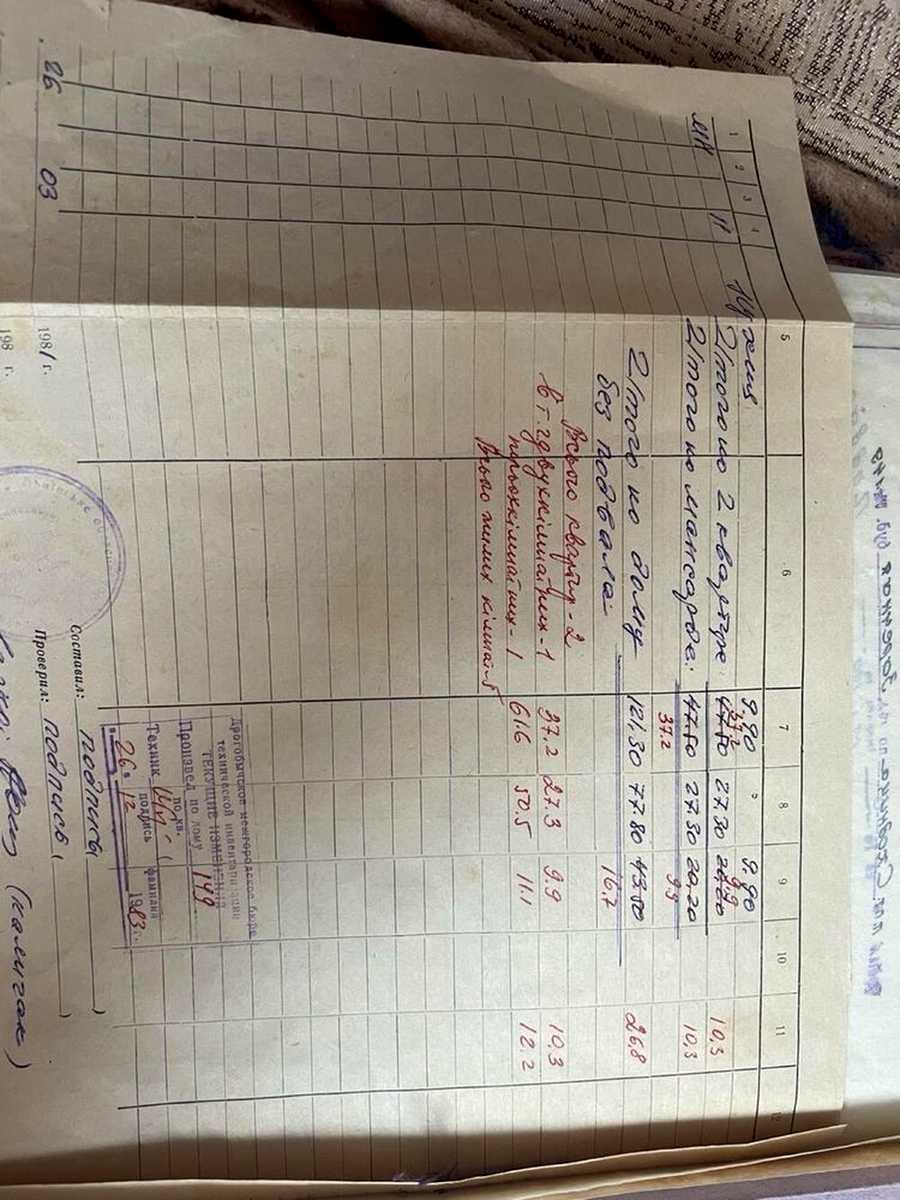 1 2 3 4 5 6 7 8 9 10 11 12
Кухня 9.90 9.90
МН II Итого по 2 квартире: 47.50 37.2 27.30 20.20 9.9 10,3
Итого по мансарде: 47.50 27.30 20.20 10,3
37.2 9.9
Итого по дому 121.30 77.80 43.50 26,8
без подвала 16.7
Всього квартир - 2
в т.г. двухкімнатних - 1 37.2 27.3 9.9 10.3
трьохкімнатних - 1 61.6 50.5 11.1 12.2
Всього жилих кімнат 5
Дрогобычское межгородское бюро
технической инвентаризации
ТЕКУЩИЕ ИЗМЕНЕНИЯ
Произвел по дому 149
по кв.
Техник (
подпись фамилия
26. 12 1983
26 03 1981 г.
198 г.
Составил: подпись ( )
Проверил: подпись ( )